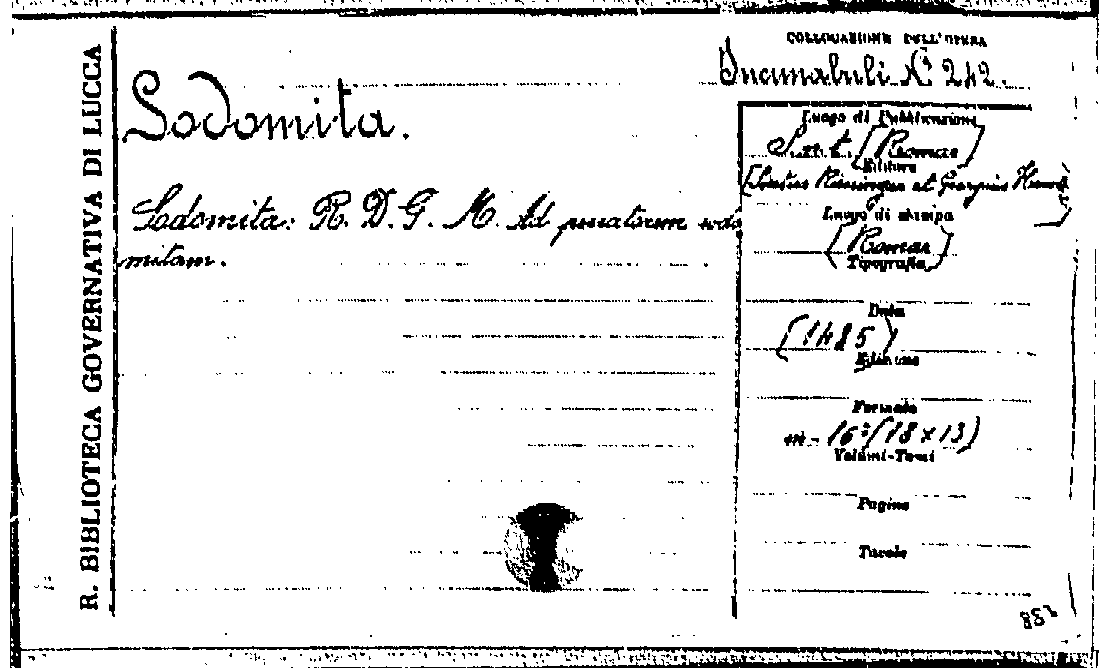 R. BIBLIOTECA GOVERNATIVA DI LUCCA
COLLOCAZIONE DELL'OPERA
Incunabuli N.° 242.
Sodomita.
Sodomita: R. D. G. M. Ad sodo
mitam.
Luogo di Pubblicazione
S. n. t. [Romae]
Editore
et Georgius
Luogo di stampa
[Romae]
Tipografia
Data
[1485]
Edizione
Formato
in - 16° (18 x 13)
Volumi-Tomi
Pagine
Tavole